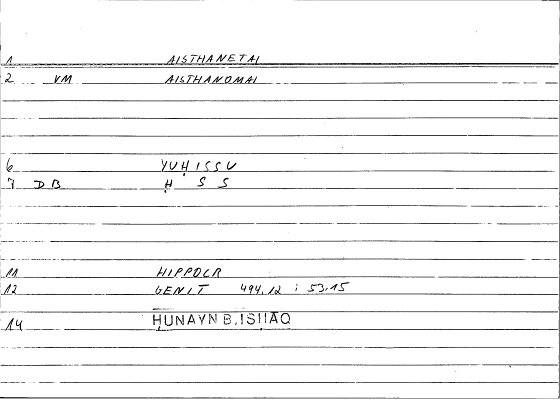 1 AISTHANETAI
2 VM AISTHANOMAI
6 YUḤISSU
7 DB Ḥ S S
11 HIPPOCR
12 GENIT 494,12 : 53,15
14 ḤUNAYN B. ISḤĀQ